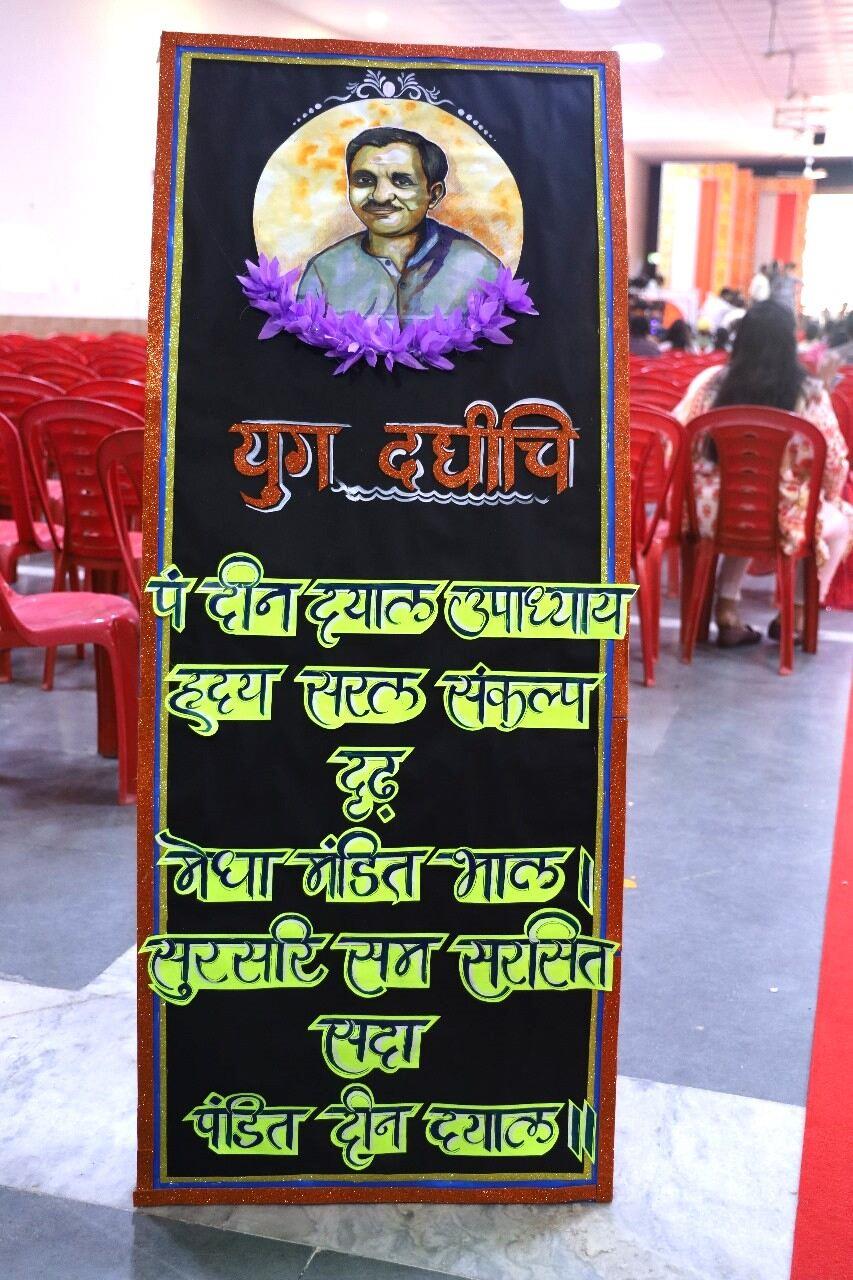 युग दधीचि
पं दीन दयाल उपाध्याय
हृदय सरल संकल्प
दृढ़
मेधा मंडित भाल।
सुरसरि सम सरसित
सदा
पंडित दीन दयाल॥